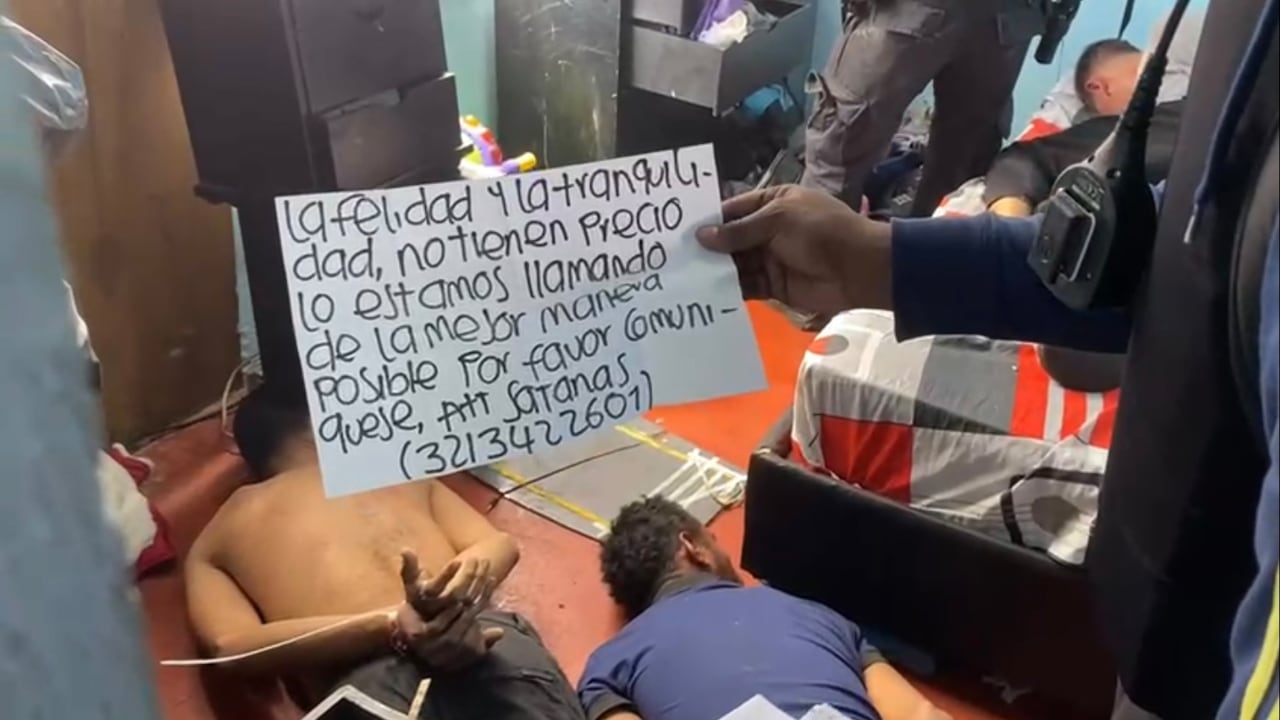 La felidad y la tranquili-
dad, no tienen precio
lo estamos llamando
de la mejor manera
posible por favor comuni-
quese, Att Satanas
(3213422601)